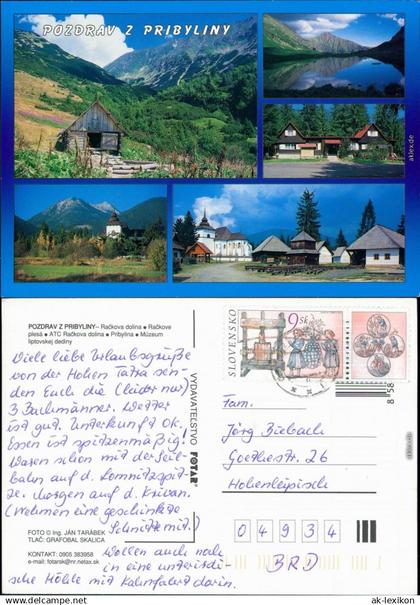 POZDRAV Z PRIBYLINY
aklex.de
POZDRAV Z PRIBYLINY – Račkova dolina ● Račkove
plesá ● ATC Račkova dolina ● Pribylina ● Múzeum
liptovskej dediny
Viele liebe Urlaubsgrüße
von der Hohen Tatra sen-
den Euch die (leider nur)
3 Bachmänner. Wetter
ist gut. Unterkunft OK.
Essen ist spitzenmäßig!
Waren schon mit der Seil-
bahn auf d. Lomnitzspit-
ze. Morgen auf d. Krivan.
(Nehmen eine geschenkte
Schnitte mit.)
Wollen auch noch
in eine unterirdi-
sche Höhle mit Kahnfahrt darin.
FOTO © Ing. JÁN TARÁBEK
TLAČ: GRAFOBAL SKALICA
KONTAKT: 0905 383958
e-mail: fotarsk@nr.netax.sk
VYDAVATEĽSTVO FOTAR
SLOVENSKO
9 Sk
8 58
Fam.
Jörg Biebach
Goethestr. 26
Hohenleipisch
04934
BRD
ak-lexikon